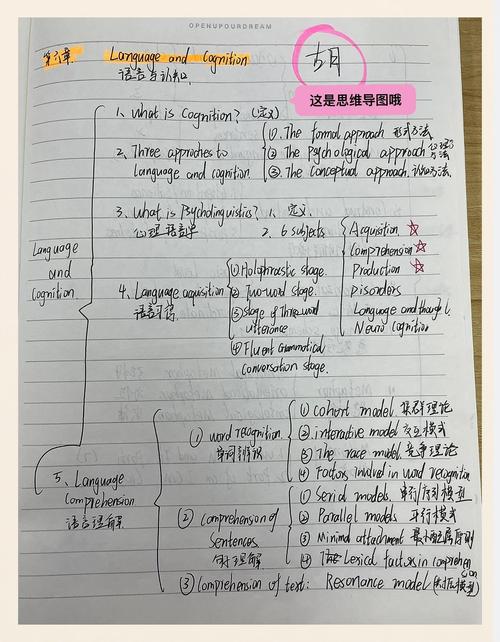 OPENUPOURDREAM
第六章 Language and Cognition
语言与认知.
这是思维导图哦
Language and Cognition
1. What is Cognition? (定义)
2. Three approches to Language and cognition.
① The formal approach 形式方法
② The Psychological approach 心理方法
③ The Conceptual approach. 认知方法.
3. What is Psycholinguistics? 1. 定义.
心理语言学 2. 6 subjects
Acquisition ☆
Comprehension ☆
Production ☆
Disorders
Language and thought.
Neuro cognition
4. Language acquisition
语言习得
① Holophrastic stage.
② Two-word stage.
③ stage of Three-word utterance
④ Fluent Grammatical conversation stage.
5. Language Comprehension
语言理解
① word recognition
单词辨识
① cohort model 集群理论
② interactive model 交互模式
③ The race model 竞争理论
④ Factors involved in word recognition
② Comprehension of Sentences
句理解
① Serial models. 串行/序列模型
② Parallel models 平行模式
③ Minimal attachment 最小附属原则
④ Lexical factors in comprehension
③ Comprehension of text: Resonance model